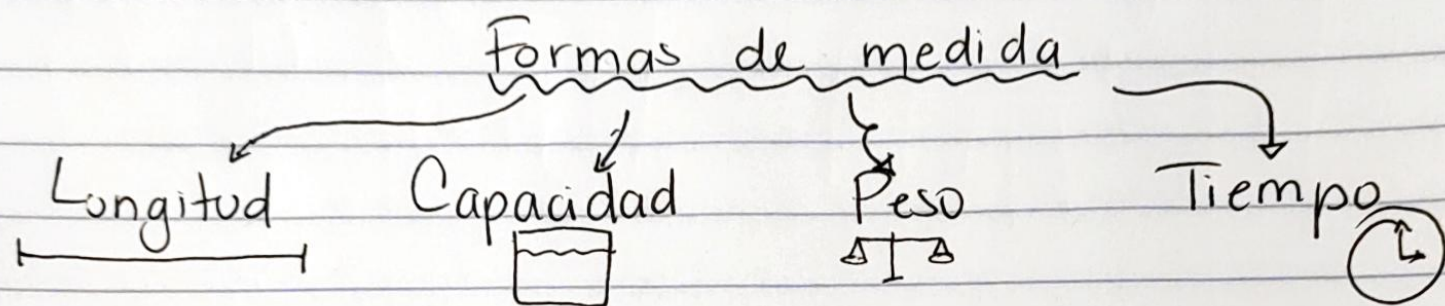 Formas de medida
Longitud Capacidad Peso Tiempo